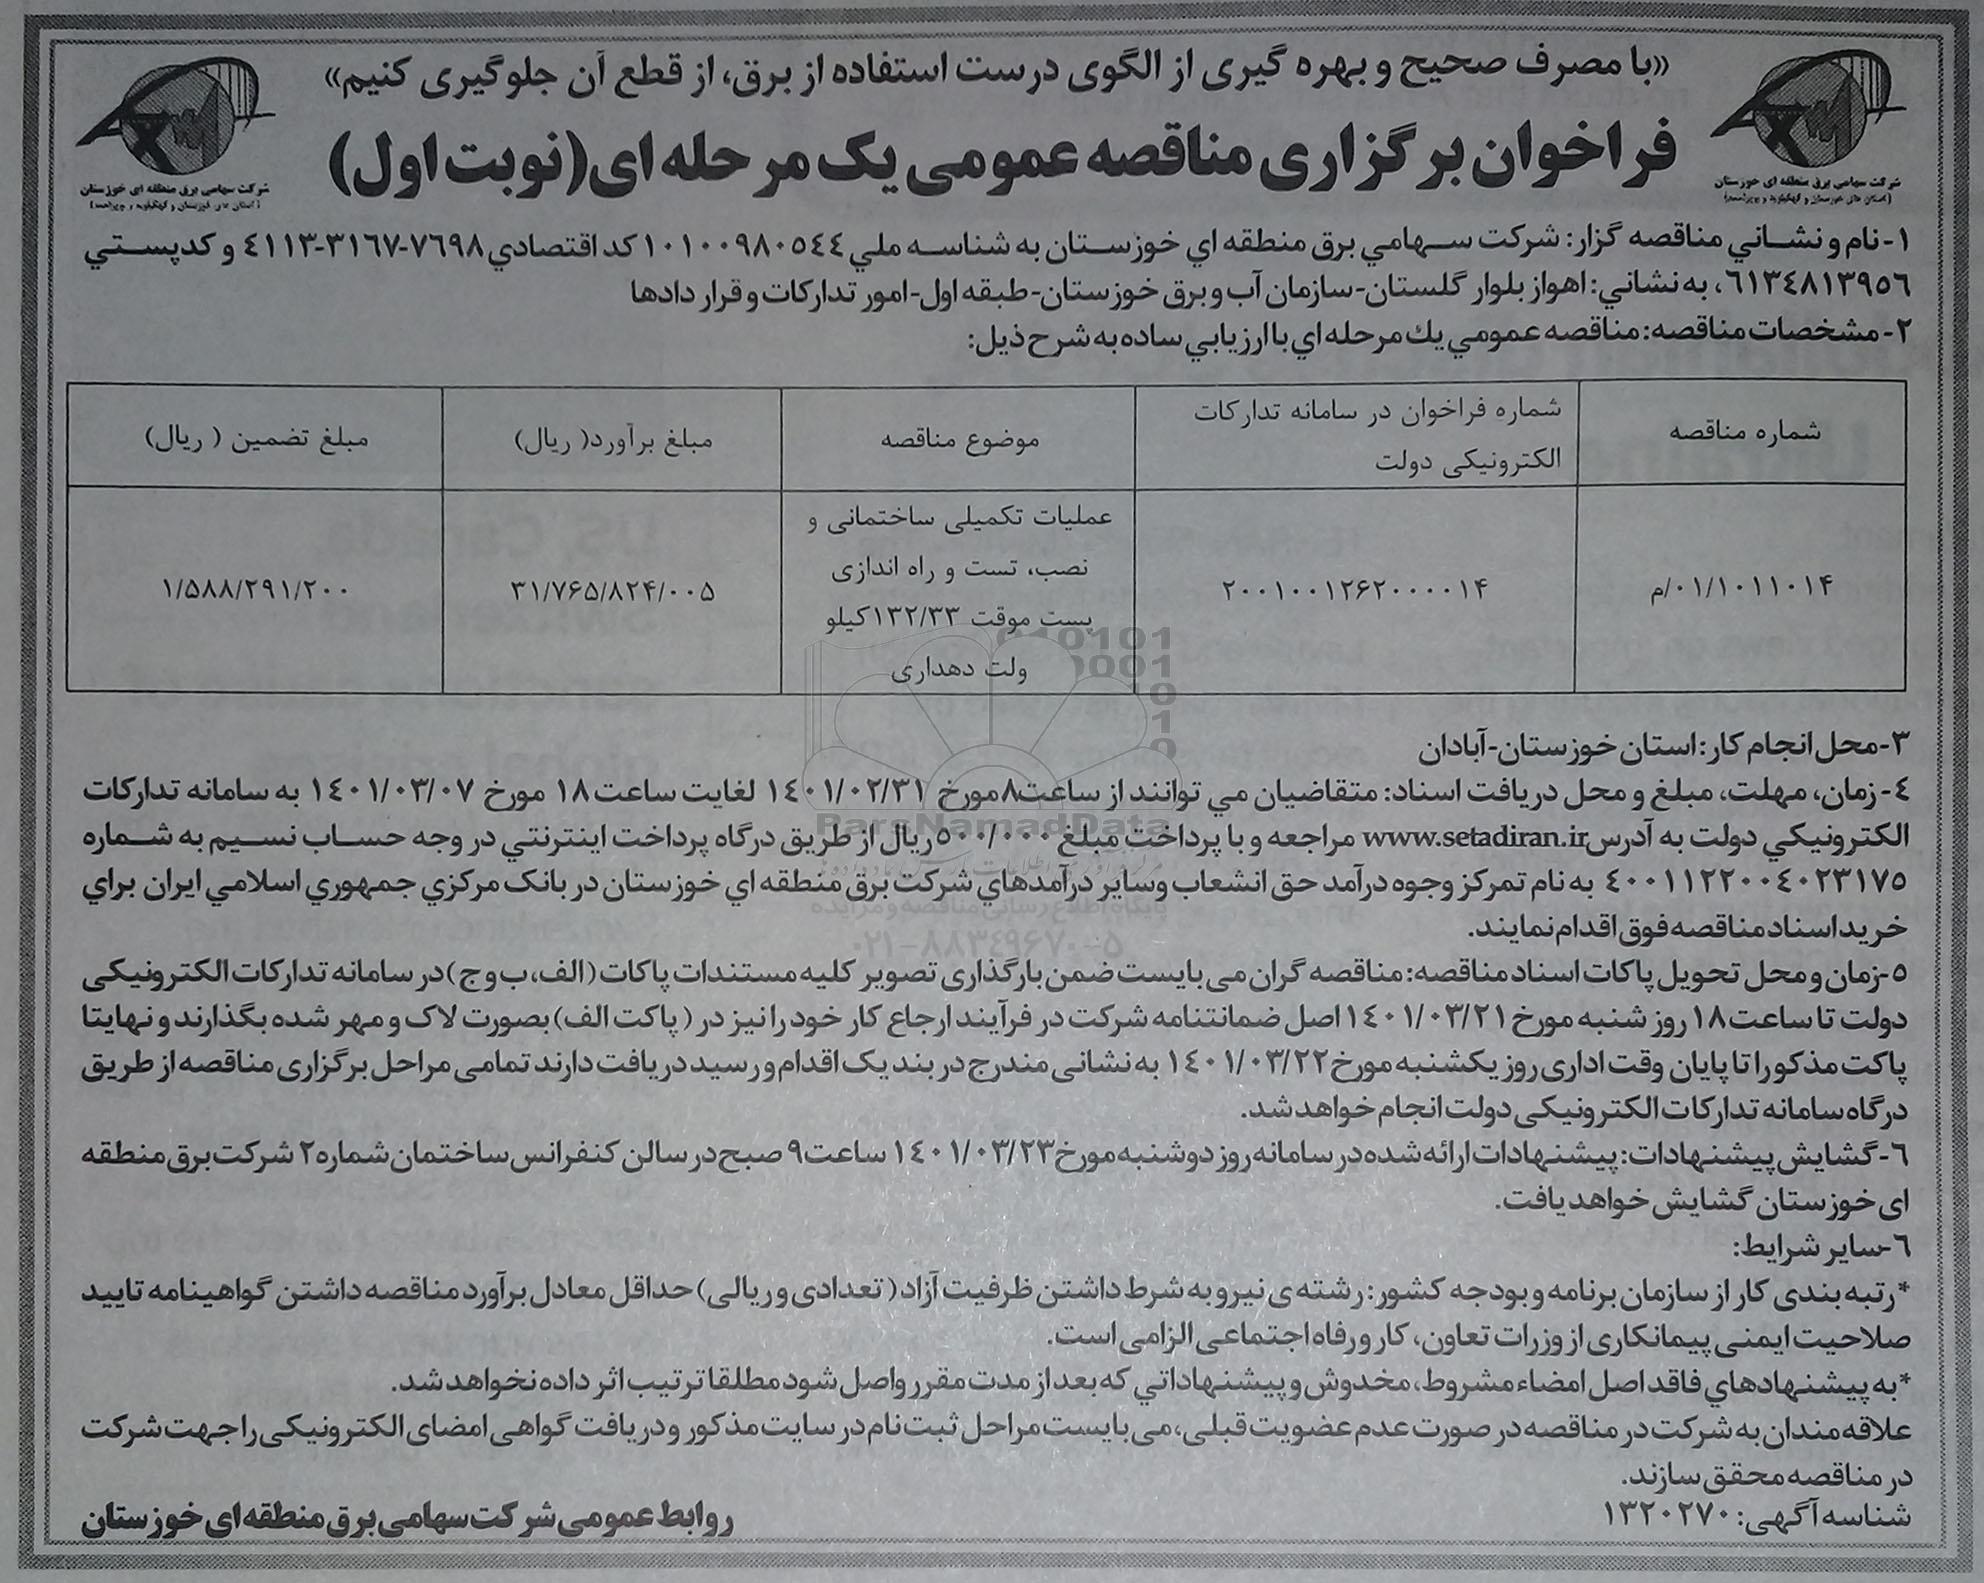 «با مصرف صحیح و بهره گیری از الگوی درست استفاده از برق، از قطع آن جلوگیری کنیم»
فراخوان برگزاری مناقصه عمومی یک مرحله ای (نوبت اول)
شرکت سهامی برق منطقه ای خوزستان
(استان های خوزستان و کهگیلویه و بویراحمد)
شرکت سهامی برق منطقه ای خوزستان
(استان های خوزستان و کهگیلویه و بویراحمد)
۱- نام و نشاني مناقصه گزار: شرکت سهامي برق منطقه اي خوزستان به شناسه ملي ۱۰۱۰۰۹۸۰۵٤٤ کد اقتصادي ۷٦۹۸-۳۱٦۷-٤۱۱۳ و کدپستي
٦۱۳٤۸۱۳۹٥٦، به نشاني: اهواز بلوار گلستان-سازمان آب و برق خوزستان-طبقه اول-امور تدارکات و قرار دادها
۲- مشخصات مناقصه: مناقصه عمومي يك مرحله اي با ارزيابي ساده به شرح ذيل:
شماره مناقصه
شماره فراخوان در سامانه تدارکات
الکترونیکی دولت
موضوع مناقصه
مبلغ برآورد( ریال)
مبلغ تضمین ( ریال)
۰۱/۱۰۱۱۰۱۴/م
۲۰۰۱۰۰۱۲۶۲۰۰۰۰۱۴
عملیات تکمیلی ساختمانی و
نصب، تست و راه اندازی
پست موقت ۱۳۲/۳۳کیلو
ولت دهداری
۳۱/۷۶۵/۸۲۴/۰۰۵
۱/۵۸۸/۲۹۱/۲۰۰
۳-محل انجام کار: استان خوزستان-آبادان
٤- زمان، مهلت، مبلغ و محل دريافت اسناد: متقاضيان مي توانند از ساعت۸مورخ ۱٤۰۱/۰۲/۳۱ لغایت ساعت ۱۸ مورخ ۱٤۰۱/۰۳/۰۷ به سامانه تدارکات
الکترونيکي دولت به آدرسwww.setadiran.ir مراجعه و با پرداخت مبلغ ۵۰۰/۰۰۰ ریال از طریق درگاه پرداخت اینترنتي در وجه حساب نسیم به شماره
٤۰۰۱۱۲۲۰۰٤۰۲۳۱۷٥ به نام تمرکز وجوه درآمد حق انشعاب وساير درآمدهاي شرکت برق منطقه اي خوزستان در بانک مرکزي جمهوري اسلامي ایران براي
خرید اسناد مناقصه فوق اقدام نمایند.
۵-زمان و محل تحویل پاکات اسناد مناقصه: مناقصه گران می بایست ضمن بارگذاری تصویر کلیه مستندات پاکات (الف، ب و ج) در سامانه تدارکات الکترونیکی
دولت تا ساعت ۱۸ روز شنبه مورخ ۱٤۰۱/۰۳/۲۱ اصل ضمانتنامه شرکت در فرآیند ارجاع کار خود را نیز در ( پاکت الف) بصورت لاک و مهر شده بگذارند و نهایتا
پاکت مذکور را تا پایان وقت اداری روز یکشنبه مورخ ۱٤۰۱/۰۳/۲۲ به نشانی مندرج در بند یک اقدام و رسید دریافت دارند تمامی مراحل برگزاری مناقصه از طریق
درگاه سامانه تدارکات الکترونیکی دولت انجام خواهد شد.
٦-گشایش پیشنهادات: پیشنهادات ارائه شده در سامانه روز دوشنبه مورخ ۱٤۰۱/۰۳/۲۳ ساعت ۹ صبح در سالن کنفرانس ساختمان شماره ۲ شرکت برق منطقه
ای خوزستان گشایش خواهد یافت.
٦-سایر شرایط:
*رتبه بندی کار از سازمان برنامه و بودجه کشور: رشته ی نیرو به شرط داشتن ظرفیت آزاد ( تعدادی و ریالی) حداقل معادل برآورد مناقصه داشتن گواهینامه تایید
صلاحیت ایمنی پیمانکاری از وزرات تعاون، کار و رفاه اجتماعی الزامی است.
*به پیشنهادهاي فاقد اصل امضاء مشروط، مخدوش و پیشنهاداتي که بعد از مدت مقرر واصل شود مطلقا ترتیب اثر داده نخواهد شد.
علاقه مندان به شرکت در مناقصه در صورت عدم عضویت قبلی، می بایست مراحل ثبت نام در سایت مذکور و دریافت گواهی امضای الکترونیکی را جهت شرکت
در مناقصه محقق سازند.
شناسه آگهی: ۱۳۲۰۲۷۰
روابط عمومی شرکت سهامی برق منطقه ای خوزستان
ParsNamadData
پایگاه اطلاع رسانی مناقصه و مزایده
۰۲۱-۸۸۳۴۹۶۷۰-۵